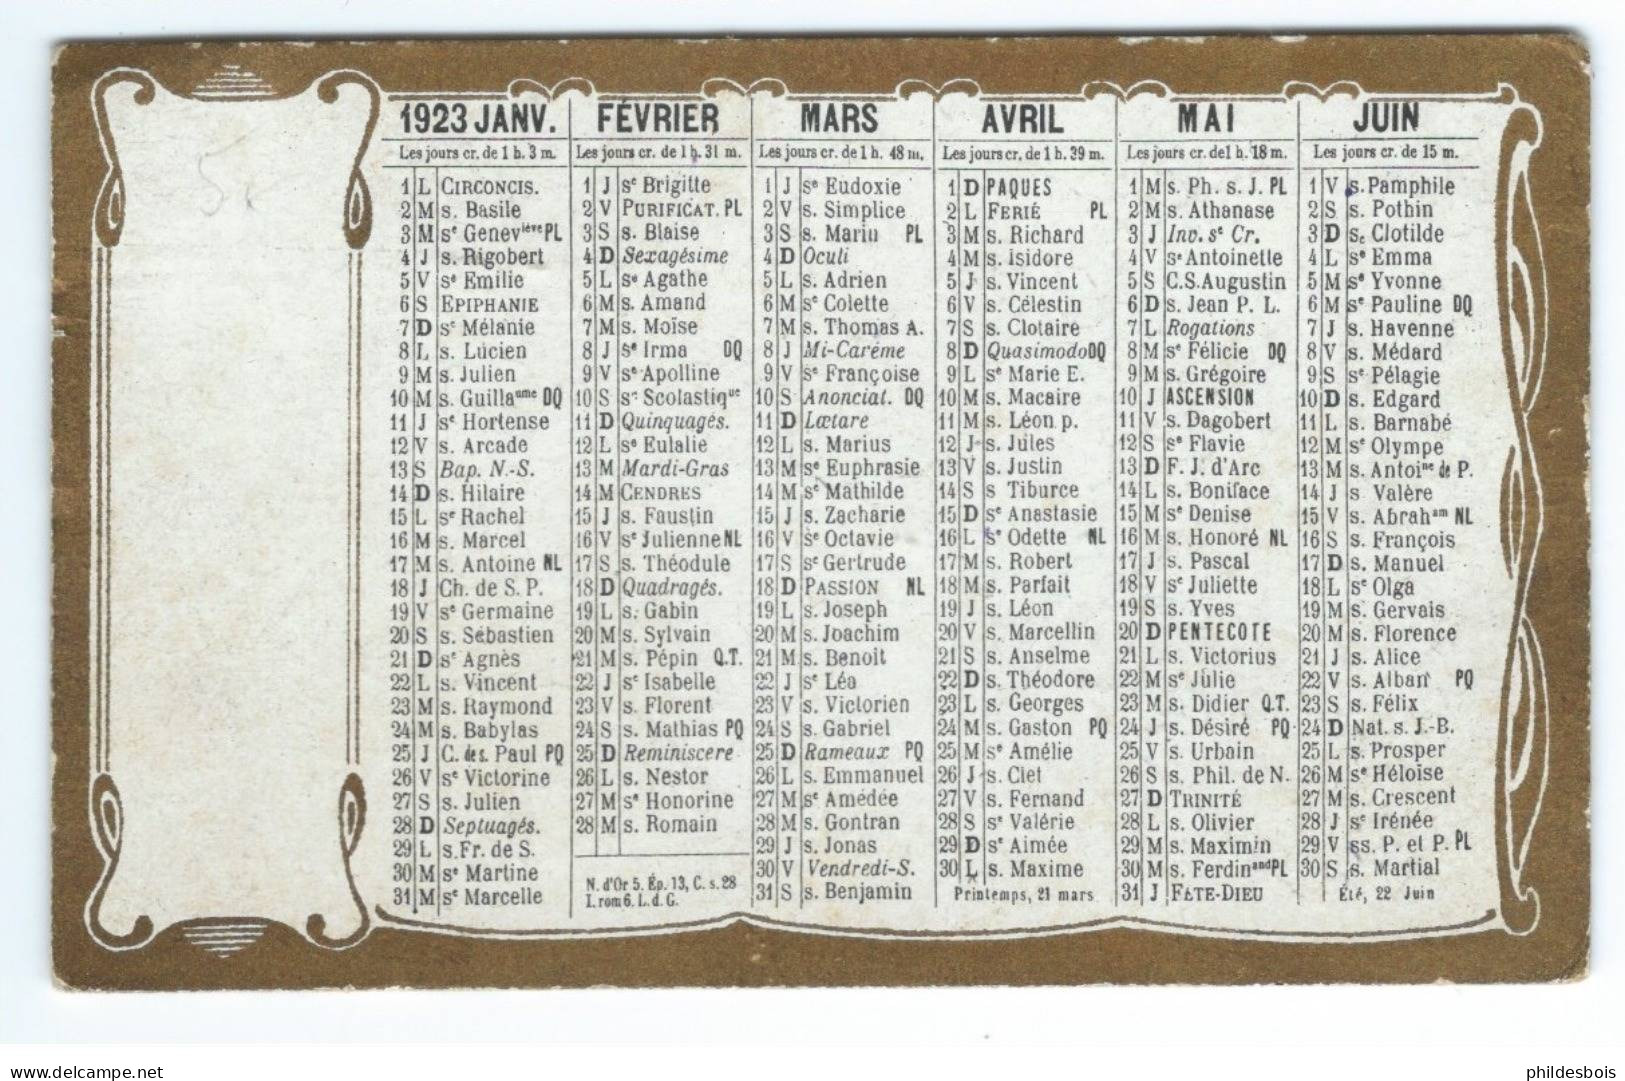 5
1923 JANV.
Les jours cr. de 1 h. 3 m.
1 L CIRCONCIS.
2 M s. Basile
3 M sᵉ Genevᶦᵉᵛᵉ PL
4 J s. Rigobert
5 V sᵉ Emilie
6 S EPIPHANIE
7 D sᵉ Mélanie
8 L s. Lucien
9 M s. Julien
10 M s. Guillaᵘᵐᵉ DQ
11 J sᵉ Hortense
12 V s. Arcade
13 S Bap. N.-S.
14 D s. Hilaire
15 L sᵉ Rachel
16 M s. Marcel
17 M s. Antoine NL
18 J Ch. de S. P.
19 V sᵉ Germaine
20 S s. Sébastien
21 D sᵉ Agnès
22 L s. Vincent
23 M s. Raymond
24 M s. Babylas
25 J C. de s. Paul PQ
26 V sᵉ Victorine
27 S s. Julien
28 D Septuagés.
29 L s. Fr. de S.
30 M sᵉ Martine
31 M sᵉ Marcelle
FÉVRIER
Les jours cr. de 1 h. 31 m.
1 J sᵉ Brigitte
2 V PURIFICAT. PL
3 S s. Blaise
4 D Sexagésime
5 L sᵉ Agathe
6 M s. Amand
7 M s. Moïse
8 J sᵉ Irma DQ
9 V sᵉ Apolline
10 S sᵉ Scolastiqᵘᵉ
11 D Quinquagés.
12 L sᵉ Eulalie
13 M Mardi-Gras
14 M CENDRES
15 J s. Faustin
16 V sᵉ Julienne NL
17 S s. Théodule
18 D Quadragés.
19 L s. Gabin
20 M s. Sylvain
21 M s. Pépin Q.T.
22 J sᵉ Isabelle
23 V s. Florent
24 S s. Mathias PQ
25 D Reminiscere
26 L s. Nestor
27 M sᵉ Honorine
28 M s. Romain
N. d'Or 5. Ép. 13, C. s. 28
I. rom 6. L. d. G.
MARS
Les jours cr. de 1 h. 48 m.
1 J sᵉ Eudoxie
2 V s. Simplice
3 S s. Marin PL
4 D Oculi
5 L s. Adrien
6 M sᵉ Colette
7 M s. Thomas A.
8 J Mi-Carême
9 V sᵉ Françoise
10 S Anonciat. DQ
11 D Lætare
12 L s. Marius
13 M sᵉ Euphrasie
14 M sᵉ Mathilde
15 J s. Zacharie
16 V sᵉ Octavie
17 S sᵉ Gertrude
18 D PASSION NL
19 L s. Joseph
20 M s. Joachim
21 M s. Benoit
22 J sᵉ Léa
23 V s. Victorien
24 S s. Gabriel
25 D Rameaux PQ
26 L s. Emmanuel
27 M sᵉ Amédée
28 M s. Gontran
29 J s. Jonas
30 V Vendredi-S.
31 S s. Benjamin
AVRIL
Les jours cr. de 1 h. 39 m.
1 D PAQUES
2 L FERIÉ PL
3 M s. Richard
4 M s. Isidore
5 J s. Vincent
6 V s. Célestin
7 S s. Clotaire
8 D Quasimodo DQ
9 L sᵉ Marie E.
10 M s. Macaire
11 M s. Léon p.
12 J s. Jules
13 V s. Justin
14 S s Tiburce
15 D sᵉ Anastasie
16 L sᵉ Odette NL
17 M s. Robert
18 M s. Parfait
19 J s. Léon
20 V s. Marcellin
21 S s. Anselme
22 D s. Théodore
23 L s. Georges
24 M s. Gaston PQ
25 M sᵉ Amélie
26 J s. Clet
27 V s. Fernand
28 S sᵉ Valérie
29 D sᵉ Aimée
30 L s. Maxime
Printemps, 21 mars
MAI
Les jours cr. de 1 h. 18 m.
1 M s. Ph. s. J. PL
2 M s. Athanase
3 J Inv. sᵉ Cr.
4 V sᵉ Antoinette
5 S C.S. Augustin
6 D s. Jean P. L.
7 L Rogations
8 M sᵉ Félicie DQ
9 M s. Grégoire
10 J ASCENSION
11 V s. Dagobert
12 S sᵉ Flavie
13 D F. J. d'Arc
14 L s. Boniface
15 M sᵉ Denise
16 M s. Honoré NL
17 J s. Pascal
18 V sᵉ Juliette
19 S s. Yves
20 D PENTECOTE
21 L s. Victorius
22 M sᵉ Julie
23 M s. Didier Q.T.
24 J s. Désiré PQ
25 V s. Urbain
26 S s. Phil. de N.
27 D TRINITÉ
28 L s. Olivier
29 M s. Maximin
30 M s. Ferdinᵃⁿᵈ PL
31 J FÊTE-DIEU
JUIN
Les jours cr. de 15 m.
1 V s. Pamphile
2 S s. Pothin
3 D sᵉ Clotilde
4 L sᵉ Emma
5 M sᵉ Yvonne
6 M sᵉ Pauline DQ
7 J s. Havenne
8 V s. Médard
9 S sᵉ Pélagie
10 D s. Edgard
11 L s. Barnabé
12 M sᵉ Olympe
13 M s. Antoiⁿᵉ de P.
14 J s Valère
15 V s. Abrahᵃᵐ NL
16 S s. François
17 D s. Manuel
18 L sᵉ Olga
19 M s. Gervais
20 M s. Florence
21 J s. Alice
22 V s. Alban PQ
23 S s. Félix
24 D Nat. s. J.-B.
25 L s. Prosper
26 M sᵉ Héloïse
27 M s. Crescent
28 J sᵉ Irénée
29 V ss. P. et P. PL
30 S s. Martial
Été, 22 Juin
delcampe.net
phildesbois